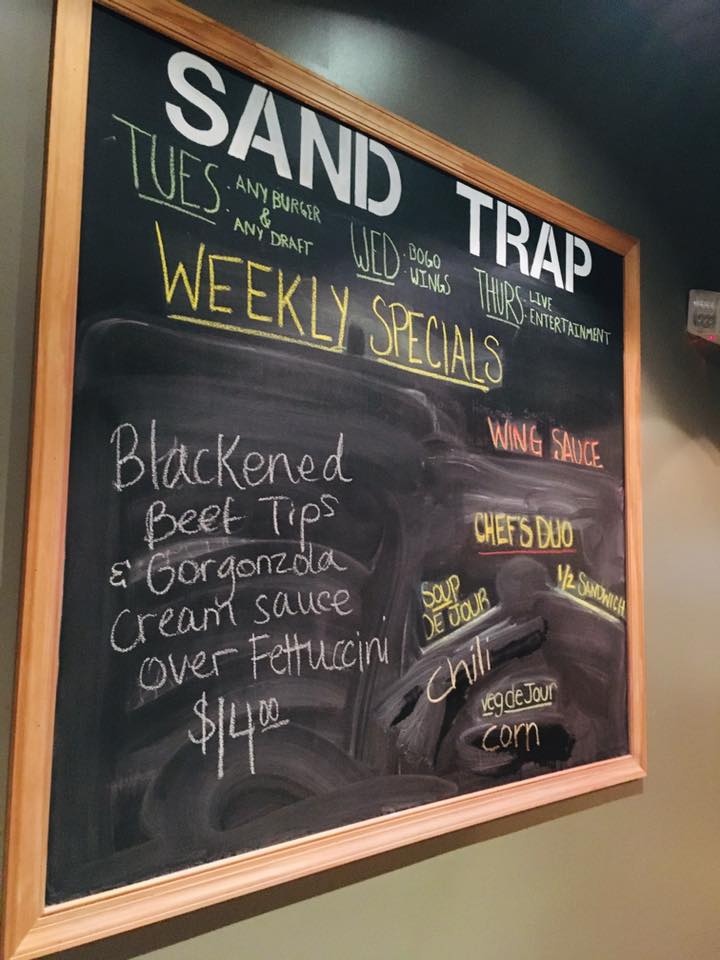 SAND TRAP
TUES. ANY BURGER
&
ANY DRAFT
WED. BOGO
WINGS
THURS. LIVE
ENTERTAINMENT
WEEKLY SPECIALS
Blackened
Beef Tips
& Gorgonzola
Cream sauce
over Fettuccini
$14.00
WING SAUCE
CHEF'S DUO
SOUP
DE JOUR
1/2 SANDWICH
chili
veg de Jour
corn